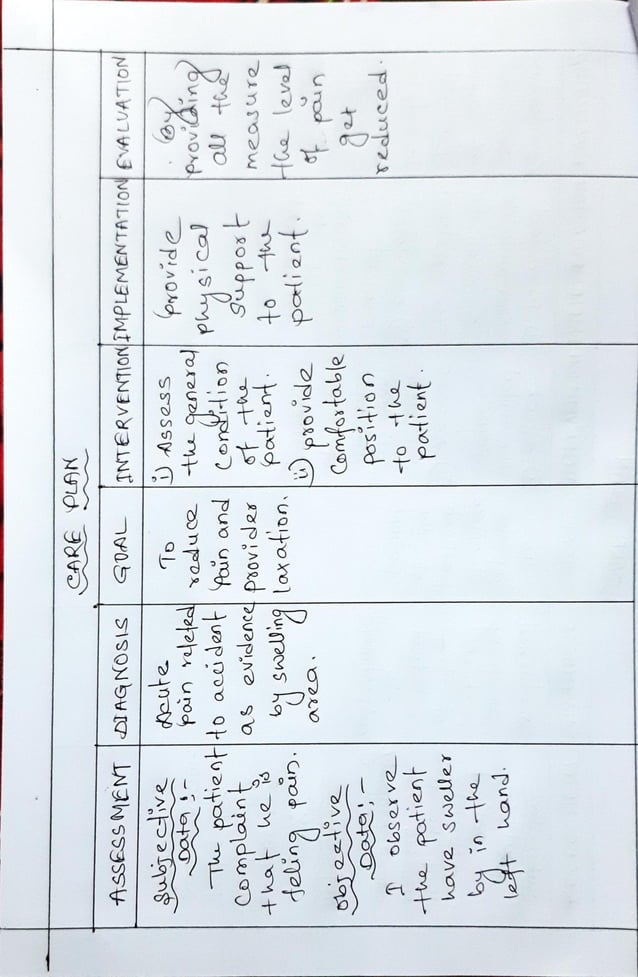 CARE PLAN
ASSESSMENT
DIAGNOSIS
GOAL
INTERVENTION
IMPLEMENTATION
EVALUATION
Subjective
Data:-
The patient
complaint
that he is
feling pain.
Objective
Data:-
I observe
the patient
have sweller
by in the
left hand.
Acute
pain releted
to accident
as evidence
by swelling
area.
To
reduce
pain and
provider
laxation.
i) Assess
the general
condition
of the
patient.
ii) provide
comfortable
position
to the
patient.
provide
physical
support
to the
patient.
By
providing
all the
measure
the level
of pain
get
reduced.